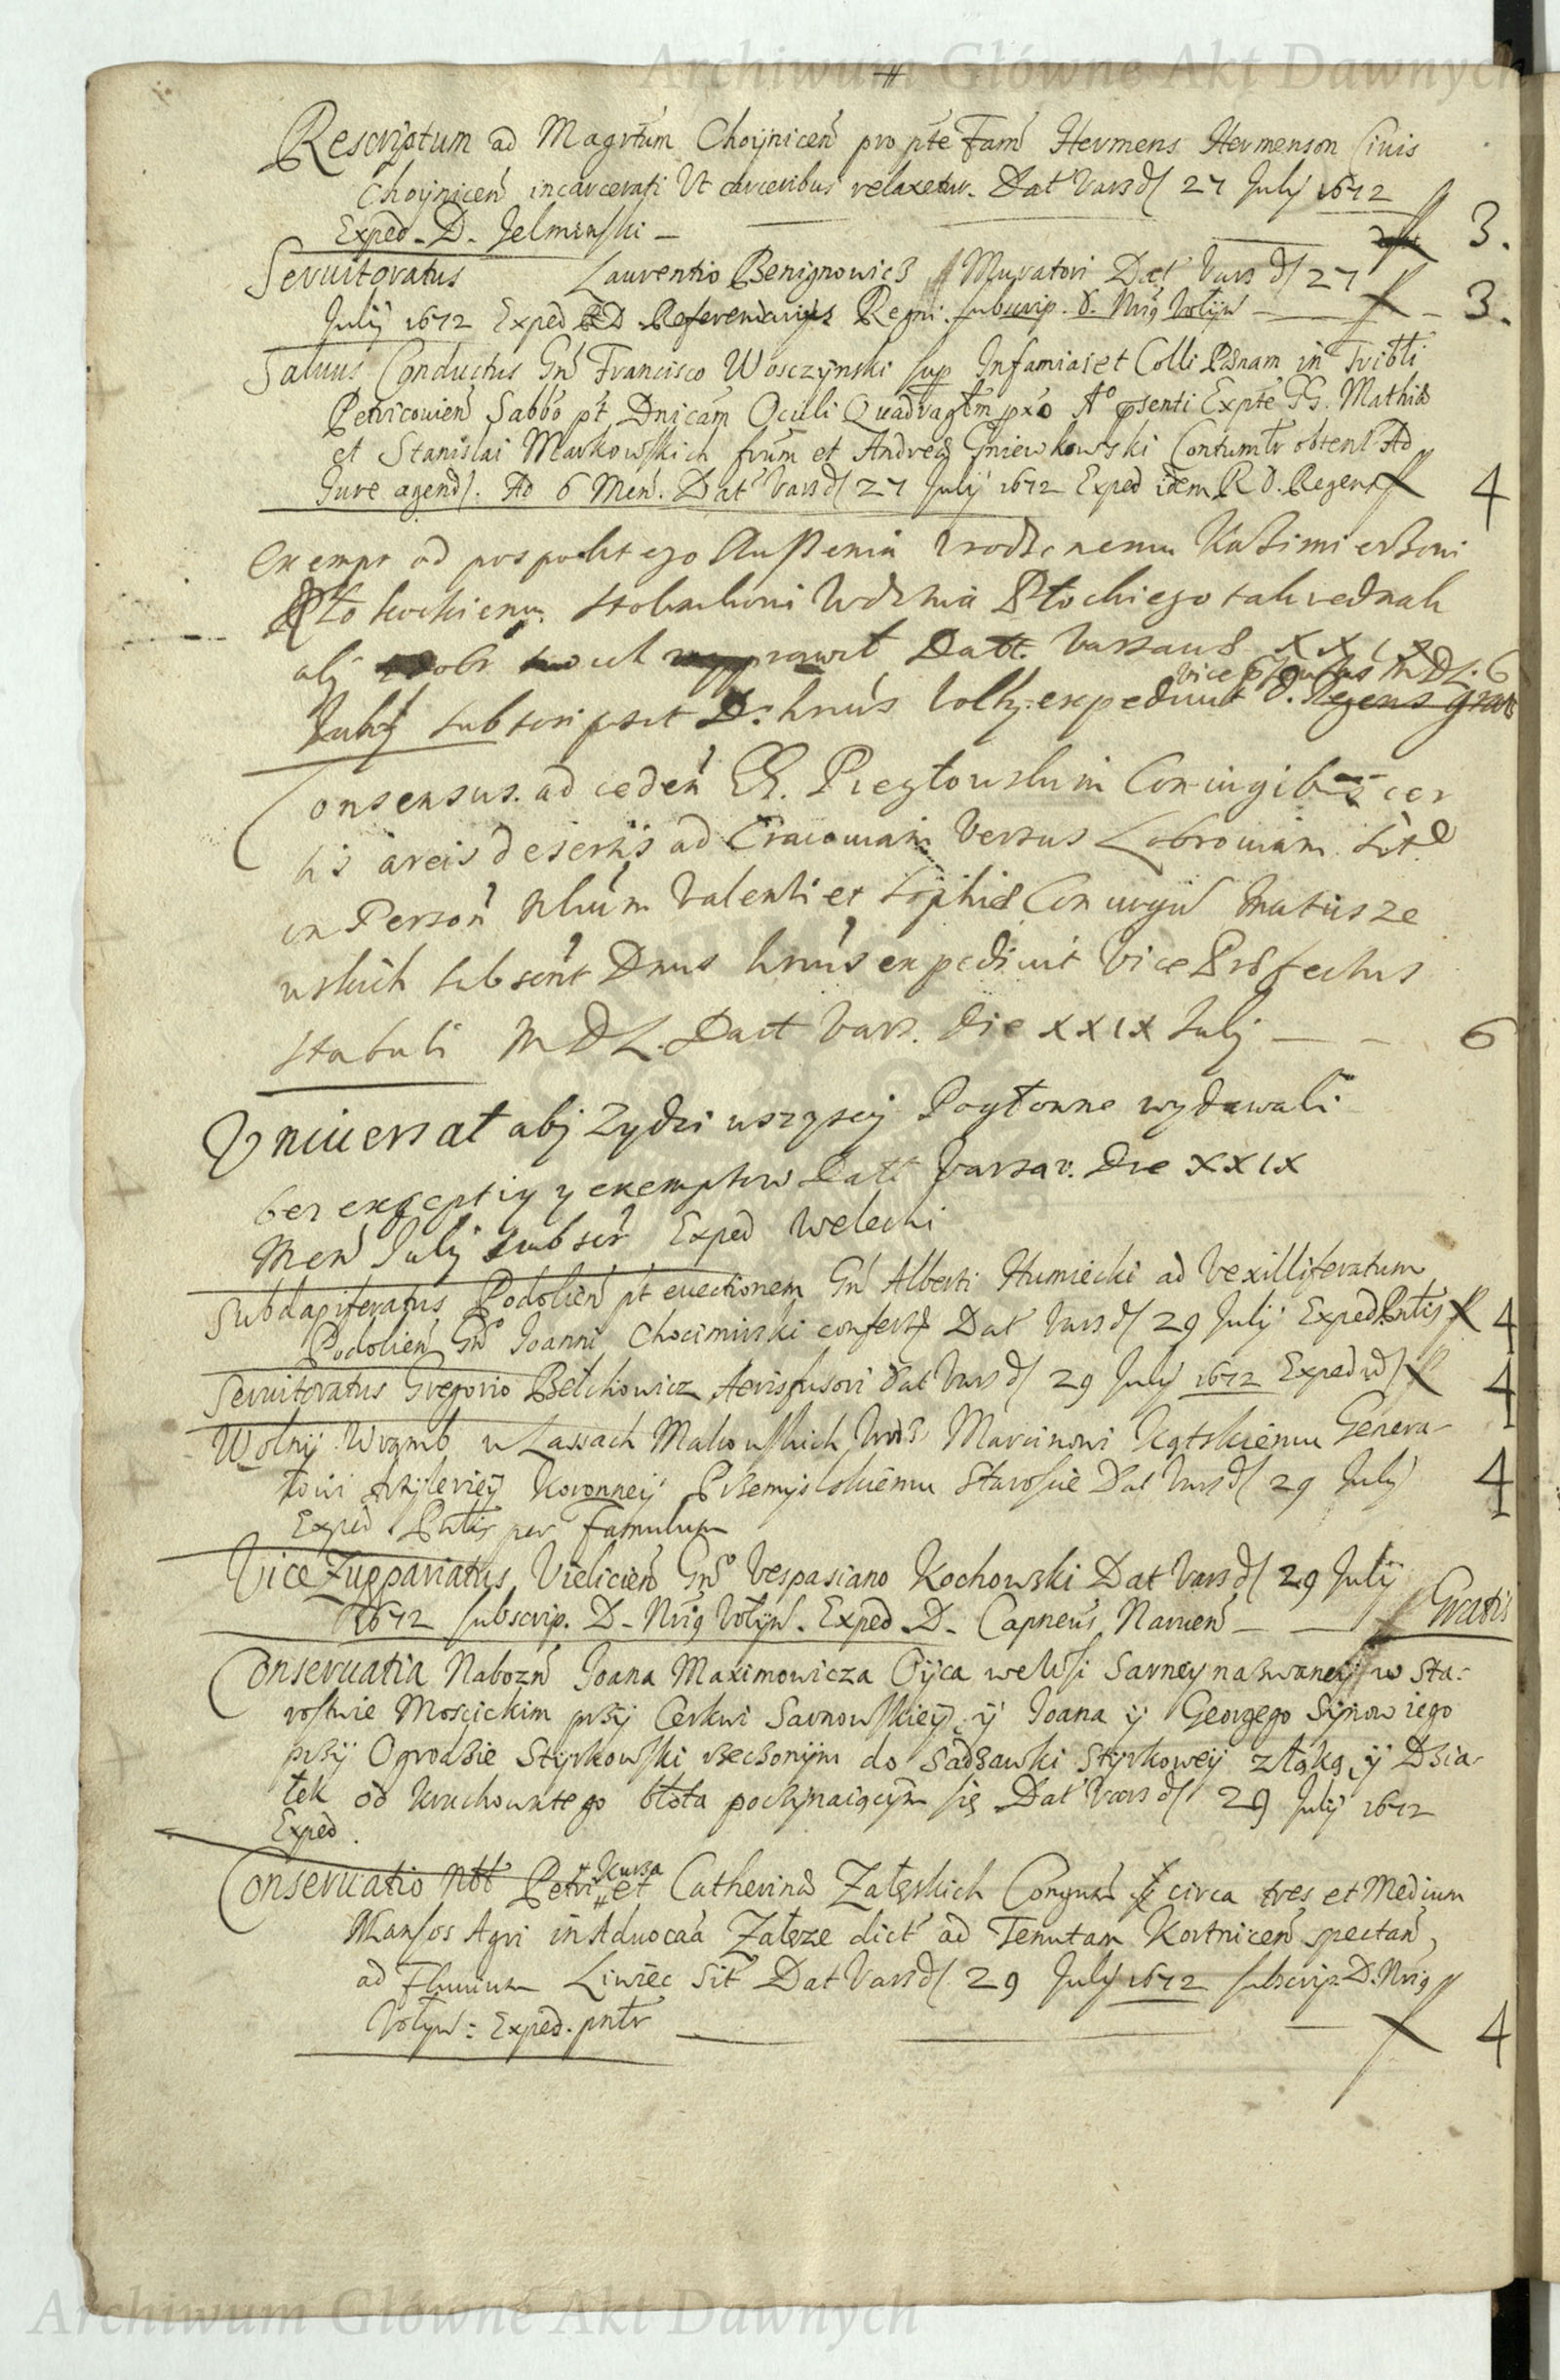 Archiwum Główne Akt Dawnych
Rescriptum ad Magrtum Choynicen pro pte Fam Hermens Hermenson Civis
Choynicen incarcerati Ut carceribus relaxetur. Dat Vars d 27 July 1672
Exped. D. Jelmenski 3.
Servitoratus Laurentio Benignowicz Muratori Dat Vars d 27
July 1672 Exped RD Referendarius Regni. subscrip. d. Nrig Wołyn 3.
Salvus Conductus Gn Francisco Wosczynski sup Infamias et Colli Pænam in Tribli
Petricovien Sabbo pt Dnicam Oculi Quadragtm pxo Aº psenti Expte GG. Mathiæ
et Stanislai Markowskich frum et Andreæ Gniewkowski Contumtr obtent Ad
Jure agend. Ad 6 Men. Dat Vars d 27 July 1672 Exped idem R D. Regens 4
Exempt od pospolitego Ruszenia Kazimierzowi
Stolnikowi Płockiego tak jednak
aby Datt. Varsaviæ XXIX
vice præfectus MDL. 6
July subscripsit D. expedivit d. Regens
Consensus ad ceden GG. Coniugibus cer
tis areis desertis ad Cracoviam Versus Lobzoviam sitæ
in Person Valenti et Sophiæ Coniugu Matusze
wskich subscrit Dnus expedivit Vice Præfectus
stabuli MDL. Datt Vars. Die XXIX July 6
Uniwersał aby Zydzi wszyscy Pogłowne wydawali
bez exceptiy y exemptow Datt Varsav. Die XXIX
Men July subscr Exped Welecki
Subdapiferatus Podolien pt evectionem Gn Alberti Humiecki ad Vexilliferatum
Podolien Gnº Joanni Chocimirski confert Dat Vars d 29 July Exped Pntis 4
Servitoratus Gregorio Bełchowicz Aerisfusori Dat Vars d 29 July 1672 Exped id 4
Wolny Wrąmb w Lassach Makowskich Marcinowi Kątskiemu Genera-
łowi Artyleriey Koronney Przemyslskiemu Staroscie Dat Vars d 29 July 4
Exped Pntis per famulum
Vice Zuppariatus Vielicien Gnº Vespasiano Kochowski Dat Vars d 29 July
1672 subscrip. D. Nrig Wołyn. Exped. D. Capneus Narven Gratis
Conservatia Nabozn Joana Maximowicza Oyca we Wsi Sarney nazwaney w Sta-
rostwie Moscickim przy Cerkwi Sarnowskiey y Joana y Georgego Synow iego
przy Ogrodzie Styrkowski rzeczonym do Sadzawki Styrkowey z łąką y Dzia-
łek od kruchowatego błota poczynaiącym się Dat Vars d 29 July 1672
Exped.
Conservatio Nbt Petri Kurza et Catherinæ Załęskich Congum circa tres et Medium
Mansos Agri in Advocaa Załęze dict ad Tenutam Kortnicen spectan,
ad Fluvium Liwiec Sit Dat Vars d 29 July 1672 subscrip. D. Nrig
Wołyn: Exped. pntr 4
Archiwum Główne Akt Dawnych